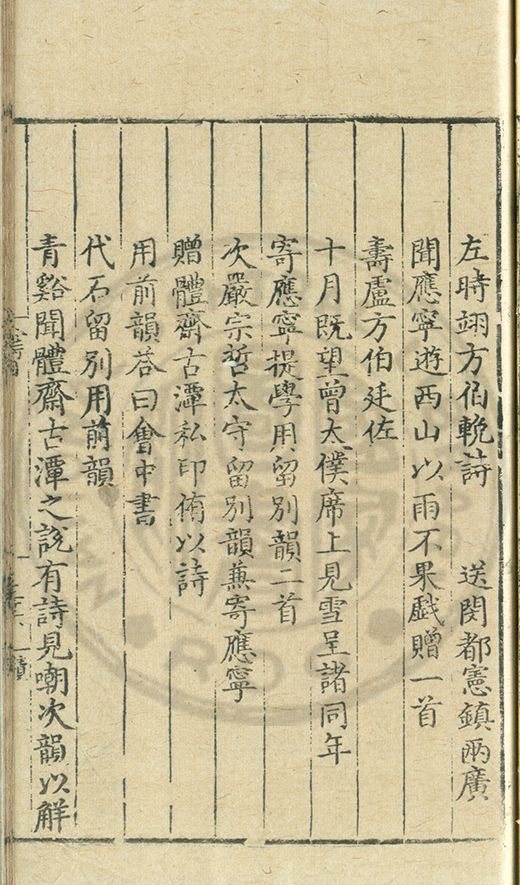 左時翊方伯輓詩　送閔都憲鎮兩廣
聞應寧遊西山以雨不果戱贈一首
壽盧方伯廷佐
十月既望曾太僕席上見雪呈諸同年
寄應寧提學用留別韻二首
次嚴宗哲太守留別韻兼寄應寧
贈體齋古潭私印侑以詩
用前韻荅曰會中書
代石留別用前韻
青谿聞體齋古潭之說有詩見嘲次韻以解